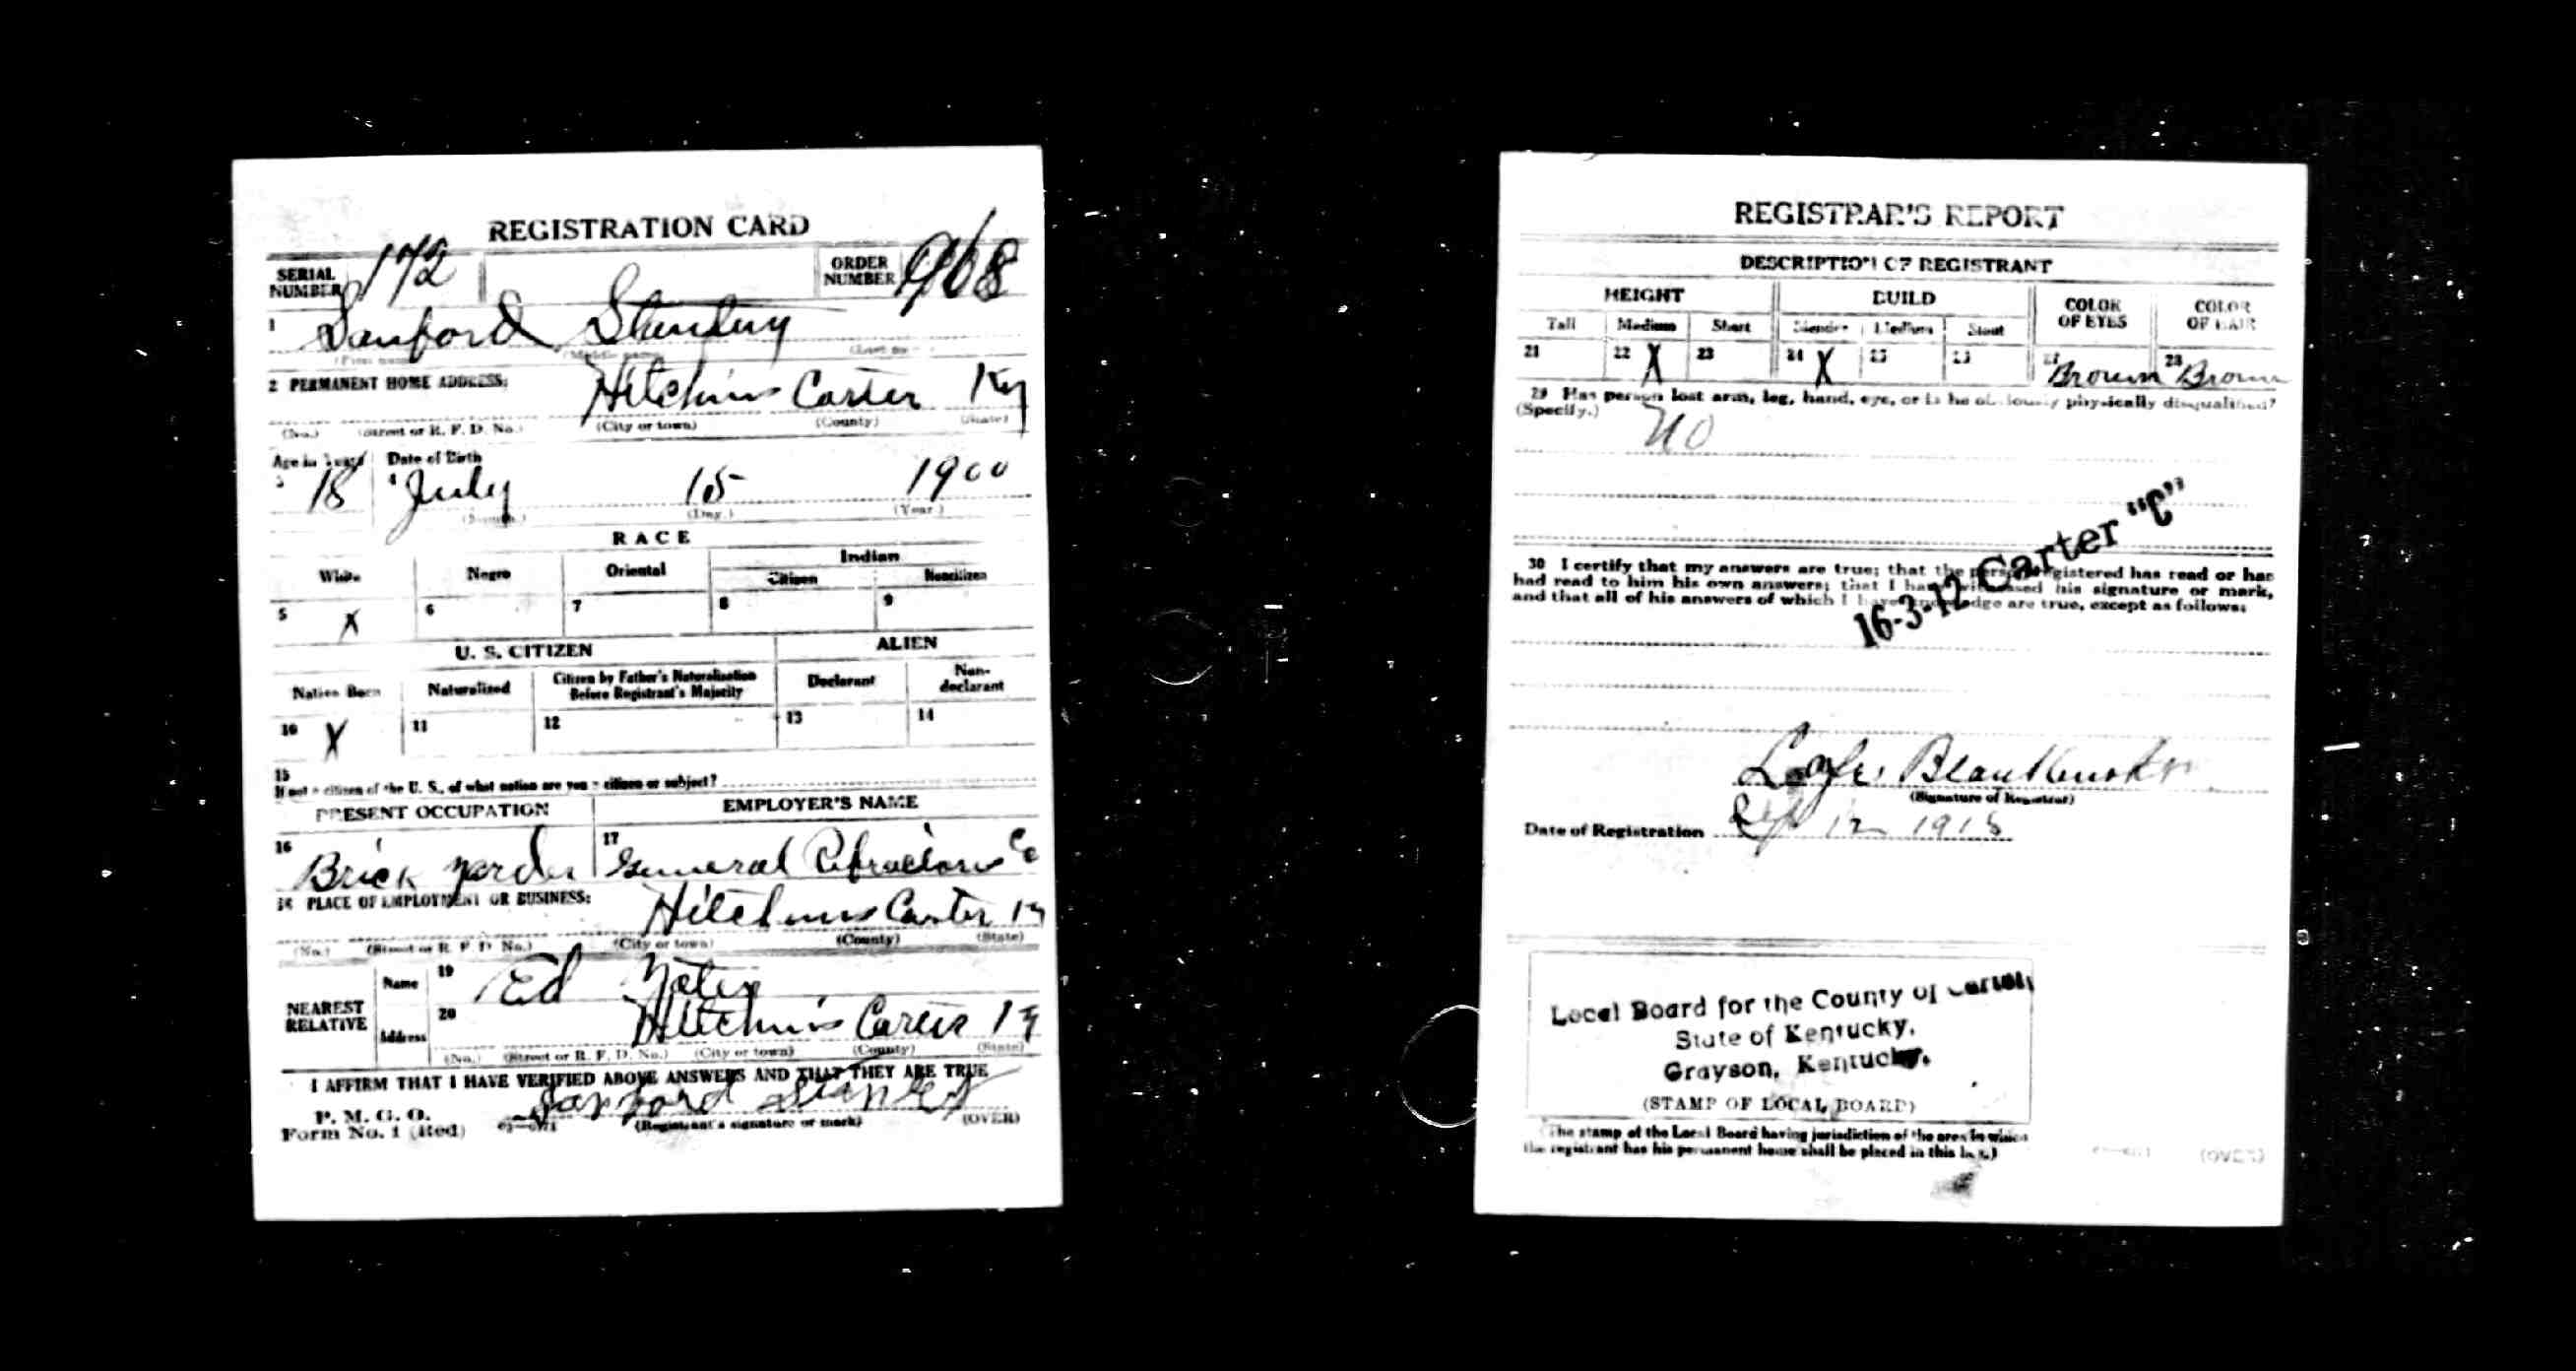 REGISTRATION CARD
SERIAL NUMBER 172 ORDER NUMBER 968
1 Sanford
(First name) (Middle name) (Last name)
2 PERMANENT HOME ADDRESS:
Hitchins Carter Ky
(No.) (Street or R. F. D. No.) (City or town) (County) (State)
Age in Years Date of Birth
3 18 4 July 15 1900
(Month.) (Day.) (Year.)
RACE
White Negro Oriental Indian
Citizen Noncitizen
5 X 6 7 8 9
U. S. CITIZEN ALIEN
Native Born Naturalized Citizen by Father's Naturalization Before Registrant's Majority Declarant Non-declarant
10 X 11 12 13 14
15
If not a citizen of the U. S., of what nation are you a citizen or subject?
PRESENT OCCUPATION EMPLOYER'S NAME
16 Brick 17 General Co
18 PLACE OF EMPLOYMENT OR BUSINESS:
Hitchins Carter Ky
(No.) (Street or R. F. D. No.) (City or town) (County) (State)
NEAREST RELATIVE
Name 19 Ed
Address 20 Hitchins Carter Ky
(No.) (Street or R. F. D. No.) (City or town) (County) (State)
I AFFIRM THAT I HAVE VERIFIED ABOVE ANSWERS AND THAT THEY ARE TRUE
P. M. G. O.
Form No. 1 (Red) Sanford
(Registrant's signature or mark) (OVER)
REGISTRAR'S REPORT
DESCRIPTION OF REGISTRANT
HEIGHT BUILD COLOR OF EYES COLOR OF HAIR
Tall Medium Short Slender Medium Stout
21 22 X 23 24 X 25 26 27 Brown 28 Brown
29 Has person lost arm, leg, hand, eye, or is he obviously physically disqualified?
(Specify.) no
16-3-12 Carter "C"
30 I certify that my answers are true; that the person registered has read or has
had read to him his own answers; that I have witnessed his signature or mark,
and that all of his answers of which I have knowledge are true, except as follows:
(Signature of Registrar)
Date of Registration Sept 12 1918
Local Board for the County of Carter,
State of Kentucky,
Grayson, Kentucky.
(STAMP OF LOCAL BOARD)
(The stamp of the Local Board having jurisdiction of the area in which
the registrant has his permanent home shall be placed in this box.)
(OVER)